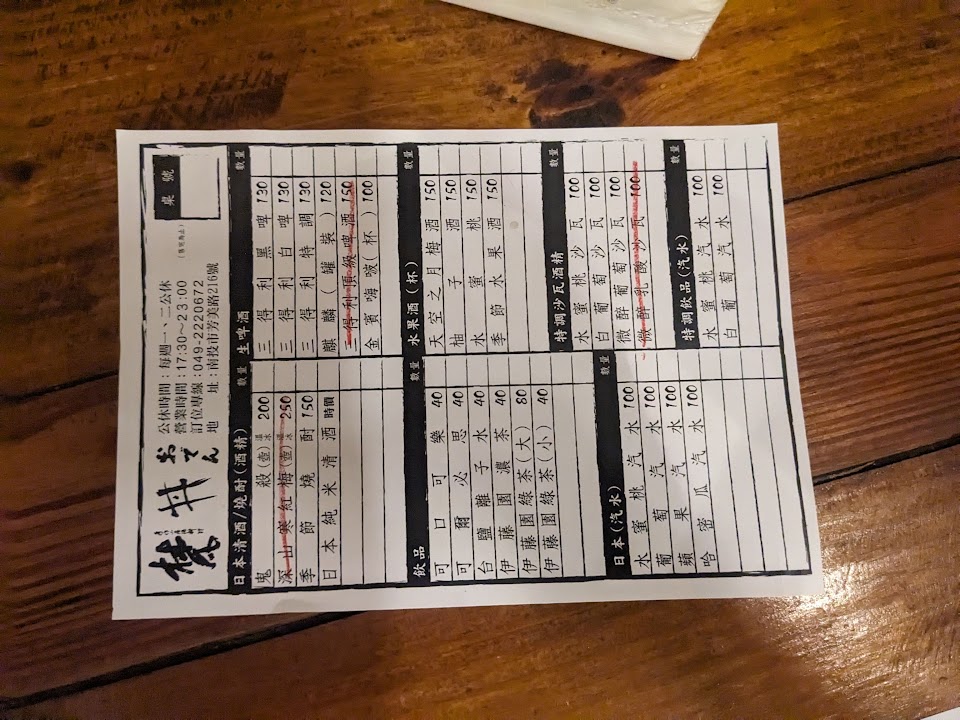 丹
おでん
公休時間：每週一、二公休
營業時間：17:30～23:00
訂位專線：049-2220672
地　　址：南投市芳美路216號
桌號
日本清酒/燒酎(酒精) 數量
鬼殺(壺) 200
深山寒紅梅(壺) 250
季節燒酎 150
日本純米清酒 時價
飲品 數量
可口可樂 40
可爾必思 40
台鹽離子水 40
伊藤園濃茶 40
伊藤園綠茶(大) 80
伊藤園綠茶(小) 40
日本(汽水) 數量
水蜜桃汽水 100
葡萄汽水 100
蘋果汽水 100
哈密瓜汽水 100
生啤酒 數量
三得利黑啤 130
三得利白啤 130
三得利特調 130
麒麟(罐裝) 120
三得利頂級啤酒 150
金賓嗨啵(杯) 100
水果酒(杯) 數量
天空之月梅酒 150
柚子酒 150
水蜜桃酒 150
季節水果酒 150
特調沙瓦酒精 數量
水蜜桃沙瓦 100
白葡萄沙瓦 100
微醉葡萄沙瓦 100
微醉乳酸沙瓦 100
特調飲品(汽水) 數量
水蜜桃汽水 100
白葡萄汽水 100